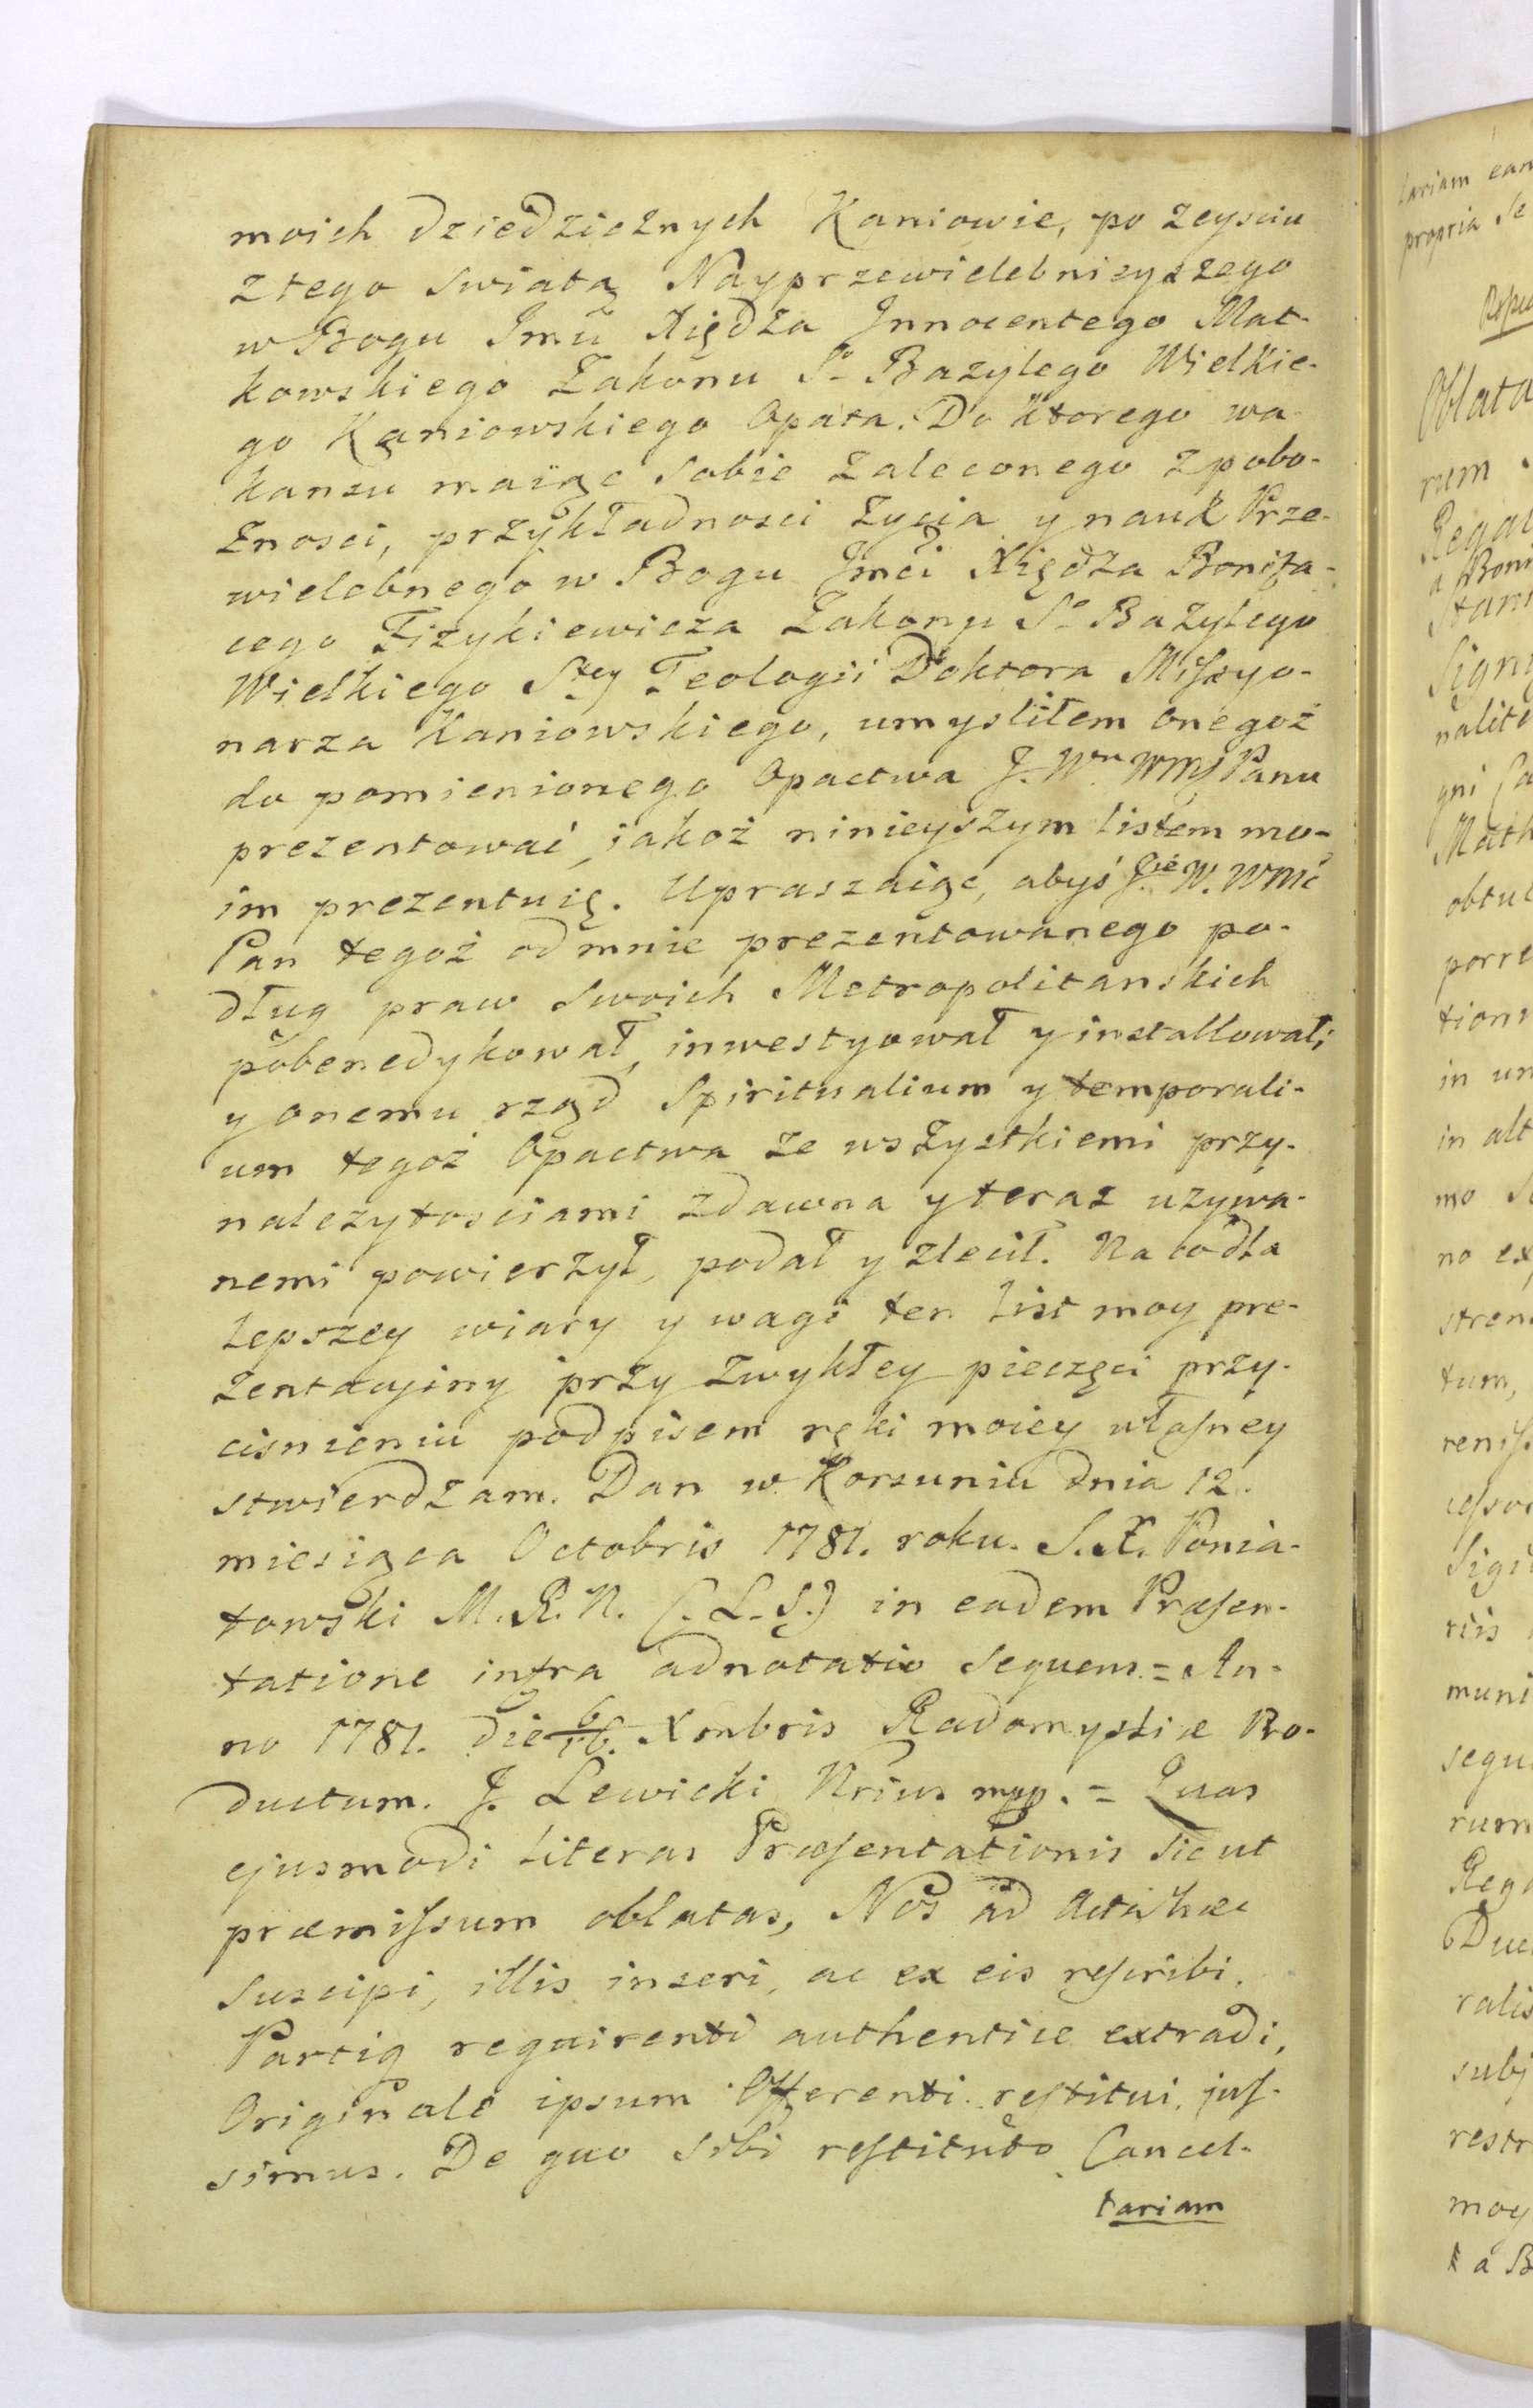 moich dziedzicznych Kaniowie, po zeysciu
z tego swiata Nayprzewielebnieyszego
w Bogu Jmci Xiędza Jnnocentego Mat-
kowskiego Zakonu So Bazylego Wielkie-
go Kaniowskiego Opata. Do ktorego wa-
kansu maiąc sobie zaleconego z pobo-
żnosci, przykładnosci życia y nauk Prze-
wielebnego w Bogu Jmci Xiędza Bonifa-
cego Fizykiewicza Zakonu So Bazylego
Wielkiego Stey Teologii Doktora Missyo-
narza Kaniowskiego, umysliłem onegoż
do pomienionego Opactwa J. Wu WMć Panu
prezentować, jakoż ninieyszym listem mo-
im prezentuię. Upraszaiąc, abyś Jie W. WMć
Pan tegoż odemnie prezentowanego po-
dług praw swoich Metropolitanskich
pobenedykował, inwestyował y installował;
y onemu rząd Spiritualium y temporali-
um tegoż Opactwa ze wszystkiemi przy-
należytosciami zdawna y teraz używa-
nemi powierzył, podał y zlecił. Na co dla
lepszey wiary y wagi ten list moy pre-
zentacyiny przy zwykłey pieczęci przy-
cisnieniu podpisem ręki moiey własney
stwierdzam. Dan w Korsuniu dnia 12.
miesiąca Octobris 1781. roku. S. X. Ponia-
towski M. R. N. (. L. S.) in eadem Præsen-
tatione infra adnotatio sequens = An-
no 1781. die 6/16. Xmbris Radomysliæ Pro-
ductum. J. Lewicki Nrius mpp. = Quas
ejusmodi literas Præsentationis sicut
præmissum oblatas, Nos ad Acta hæc
suscipi, illis inseri, ac ex eis rescribi.
Partiq requirenti authentice extradi,
Originale ipsum Offerenti restitui jus-
simus. De quo sibi restituto Cancel-
lariam